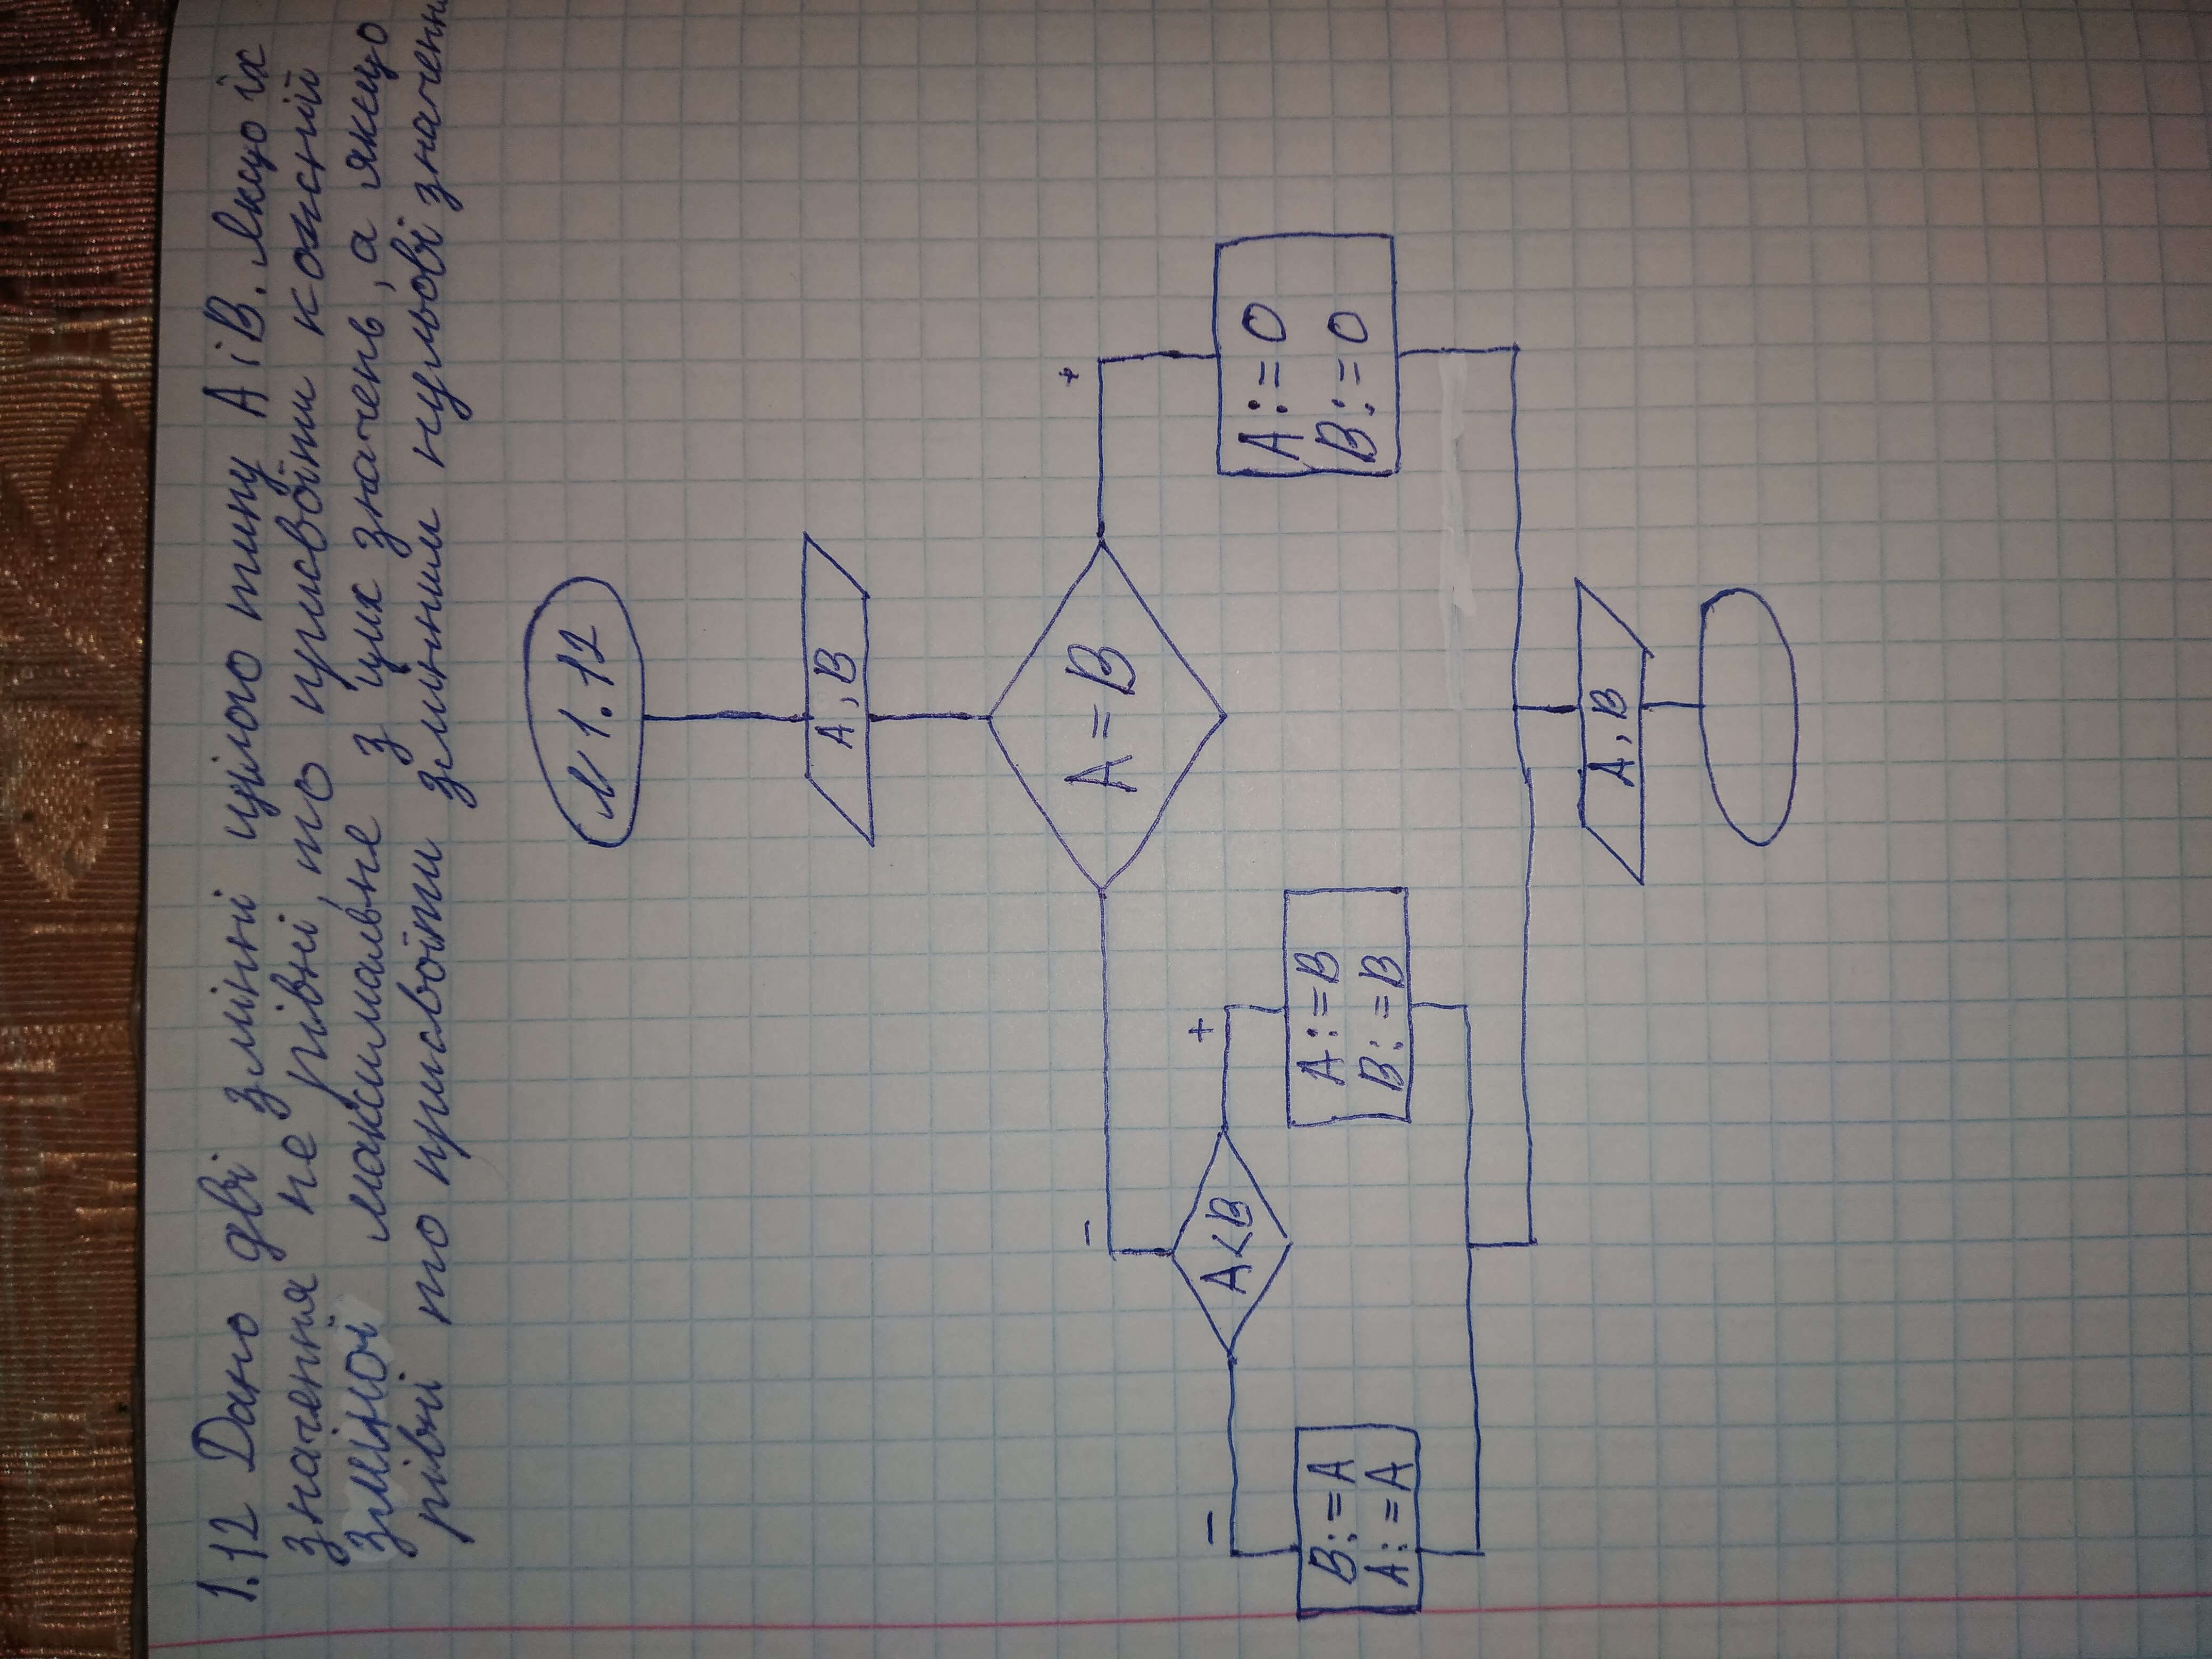 1.12 Дано дві змінні цілого типу A і B. Якщо їх
значення не рівні, то присвоїти кожній
зміної максимальне з цих значень, а якщо
рівні то присвоїти змінним нульові значенн
N 1.12
A, B
A = B
- +
A<B
- +
B:=A
A:=A
A:=B
B:=B
A:=0
B:=0
A, B